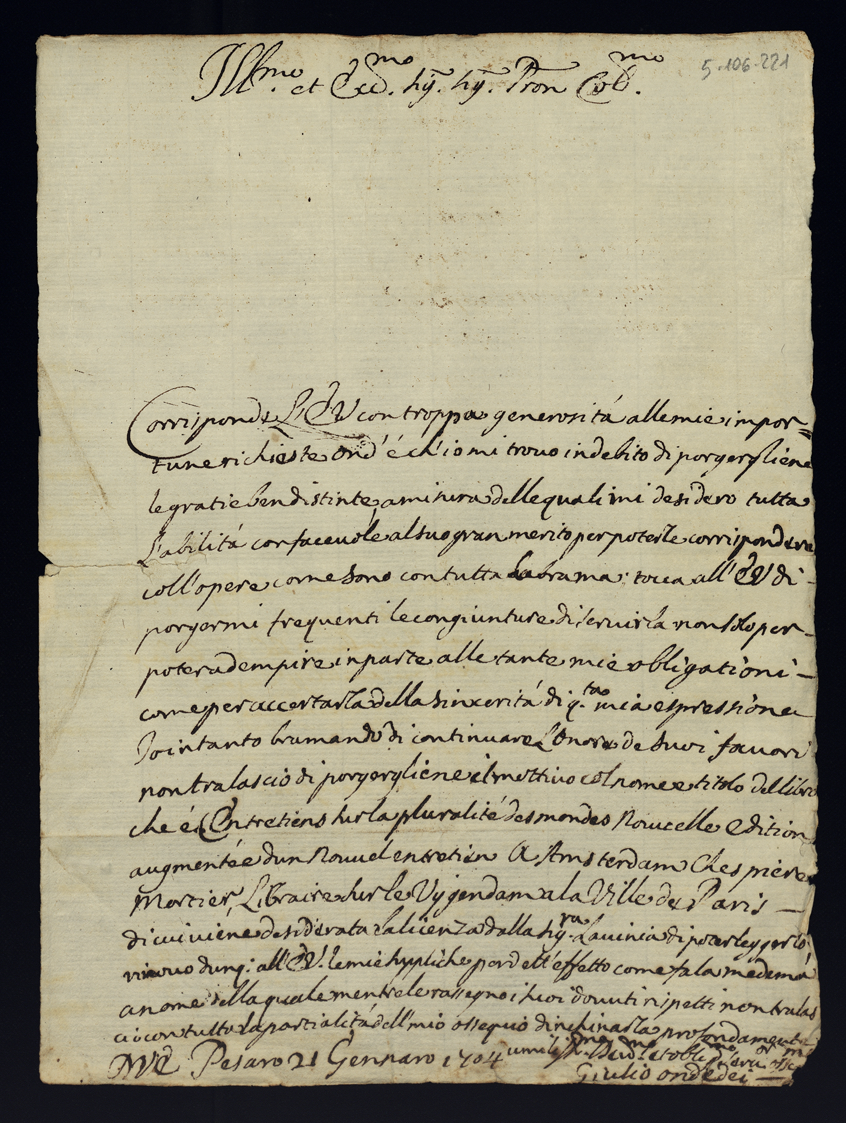 5-106-221
Ill.mo et Ecc.mo Sig. Sig. Pron Col.mo
Corrisponde L'EV con troppa generosità alle mie impor=
tune richieste ond'é ch'io mi trovo in debito di porgergliene
le gratie ben distinte, a misura delle quali mi desidero tutta
L'abilitá confaceuole al suo gran merito per poterle corrispondere
coll'opere come sono con tutta la brama; tocca all'EV di-
porgermi frequenti le congiunture di seruirla non solo per-
poter adempire in parte alle tante mie obligationi-
come per accertarla della sincerità di q.ta mia espressione
Io intanto bramando di continuare L'onore de suoi fauori
non tralascio di porgergliene il mottivo col nome e titolo del libro
che é Entretiens sur la pluralité des mondes Nouuelle Edition
augmentée d'un Nouuel entretien A Amsterdam Ches piere
Mortier, Libraire sur le Vygendam a la Ville de Paris -
di cui viene desiderata la licenza dalla Sig.ra Lauinia di poter leggerlo
all'EV. le mie suppliche per dell'effetto come fa la medema
a nome della quale mentre le rassegno i suoi douuti rispetti non tralas
cio con tutta la partialitá dell'mio ossequio d'inchinarla profondamente
DVE Pesaro 21 Gennaro 1704
Giulio Ondedei